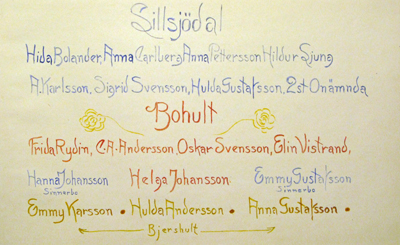 Sillsjödal
Hida Bolander, Anna Carlberg, Anna Pettersson Hildur Sjung
A. Karlsson, Sigrid Svensson, Hulda Gustafsson, 2 st Onåmnda
Bohult
Frida Rydin, C-A-Andersson, Oskar Svensson, Elin Vistrand,
Hanna Johansson Helga Johansson Emmy Gustafsson
Sinnerbo Sinnerbo
Emmy Karsson • Hulda Andersson • Anna Gustafsson •
Bjershult